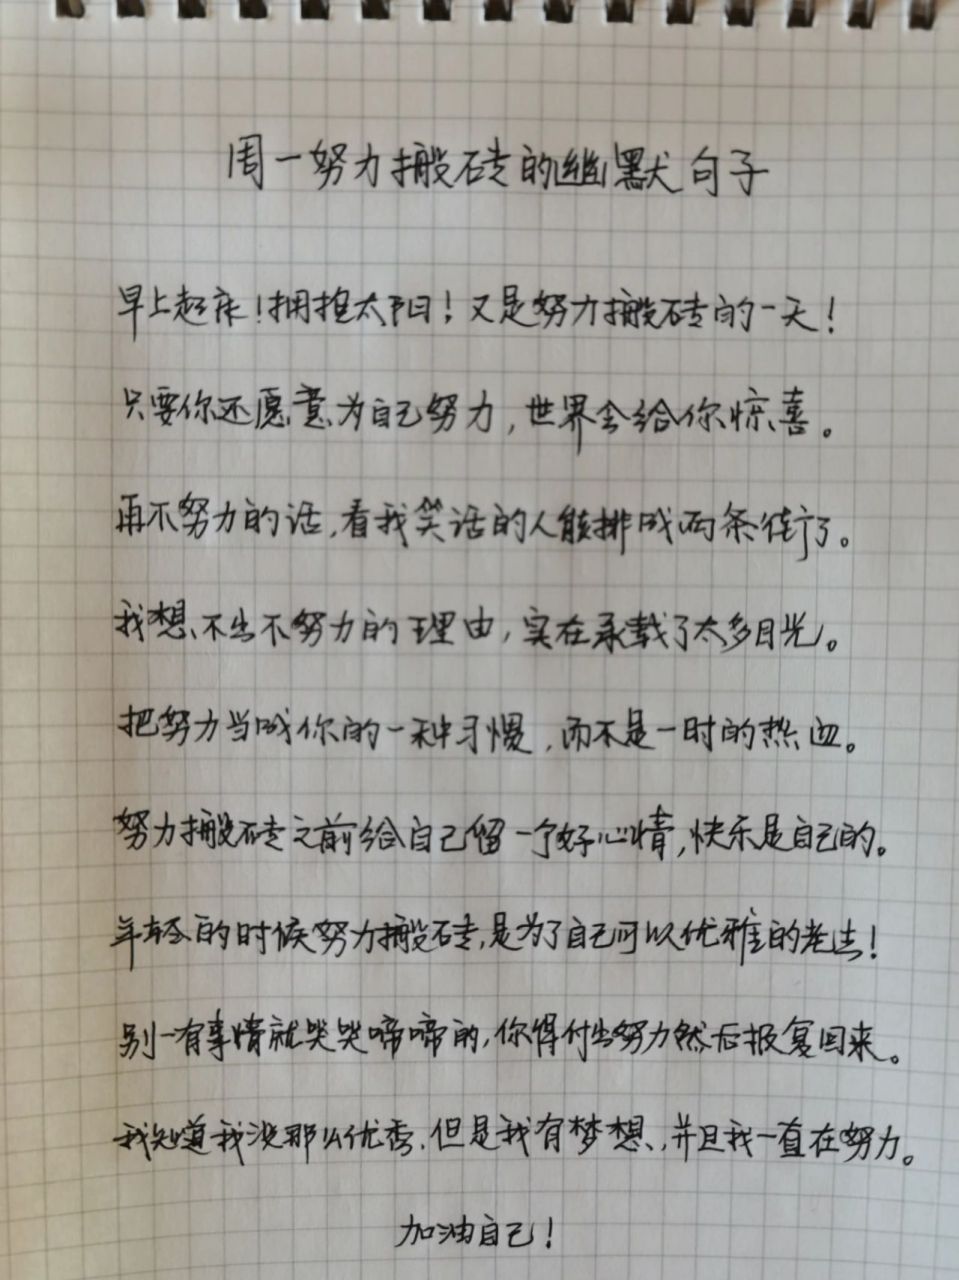 周一努力搬砖的幽默句子
早上起床！拥抱太阳！又是努力搬砖的一天！
只要你还愿意为自己努力，世界会给你惊喜。
再不努力的话，看我笑话的人能排成两条街了。
我想不出不努力的理由，实在承载了太多目光。
把努力当成你的一种习惯，而不是一时的热血。
努力搬砖之前给自己留一个好心情，快乐是自己的。
年轻的时候努力搬砖，是为了自己可以优雅的老去！
别一有事情就哭哭啼啼的，你得付出努力然后报复回来。
我知道我没那么优秀，但是我有梦想，并且我一直在努力。
加油自己！